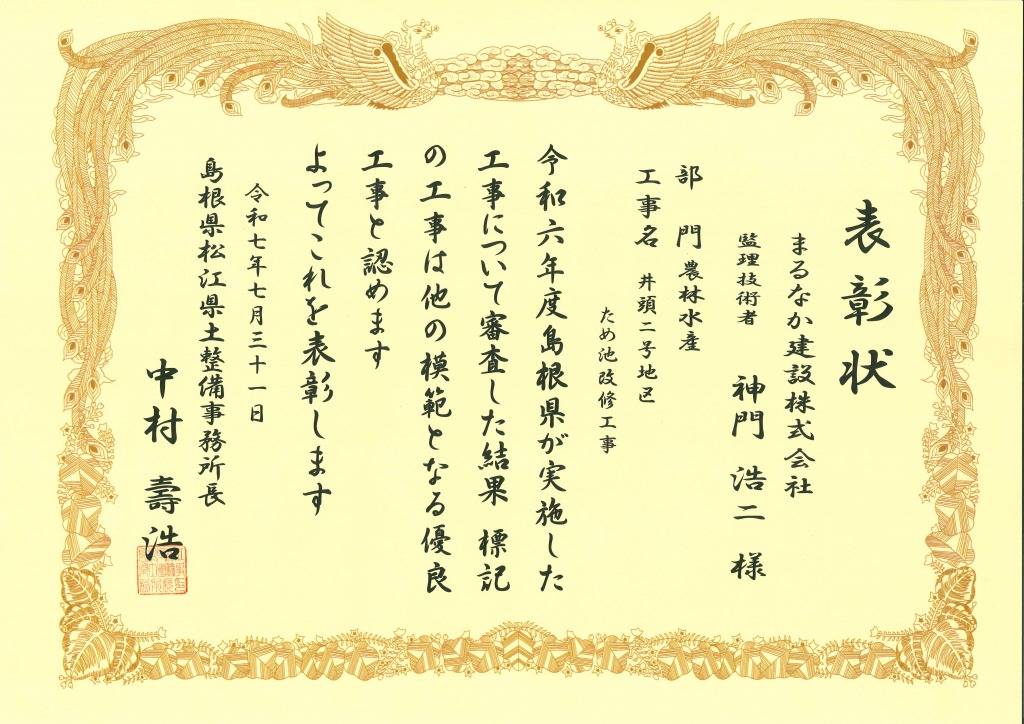 表彰状
まるなか建設株式会社
監理技術者 神門 浩二 様
部門 農林水産
工事名 井頭二号地区
ため池改修工事
令和六年度島根県が実施した
工事について審査した結果 標記
の工事は他の模範となる優良
工事と認めます
よってこれを表彰します
令和七年七月三十一日
島根県松江県土整備事務所長
中村 壽浩